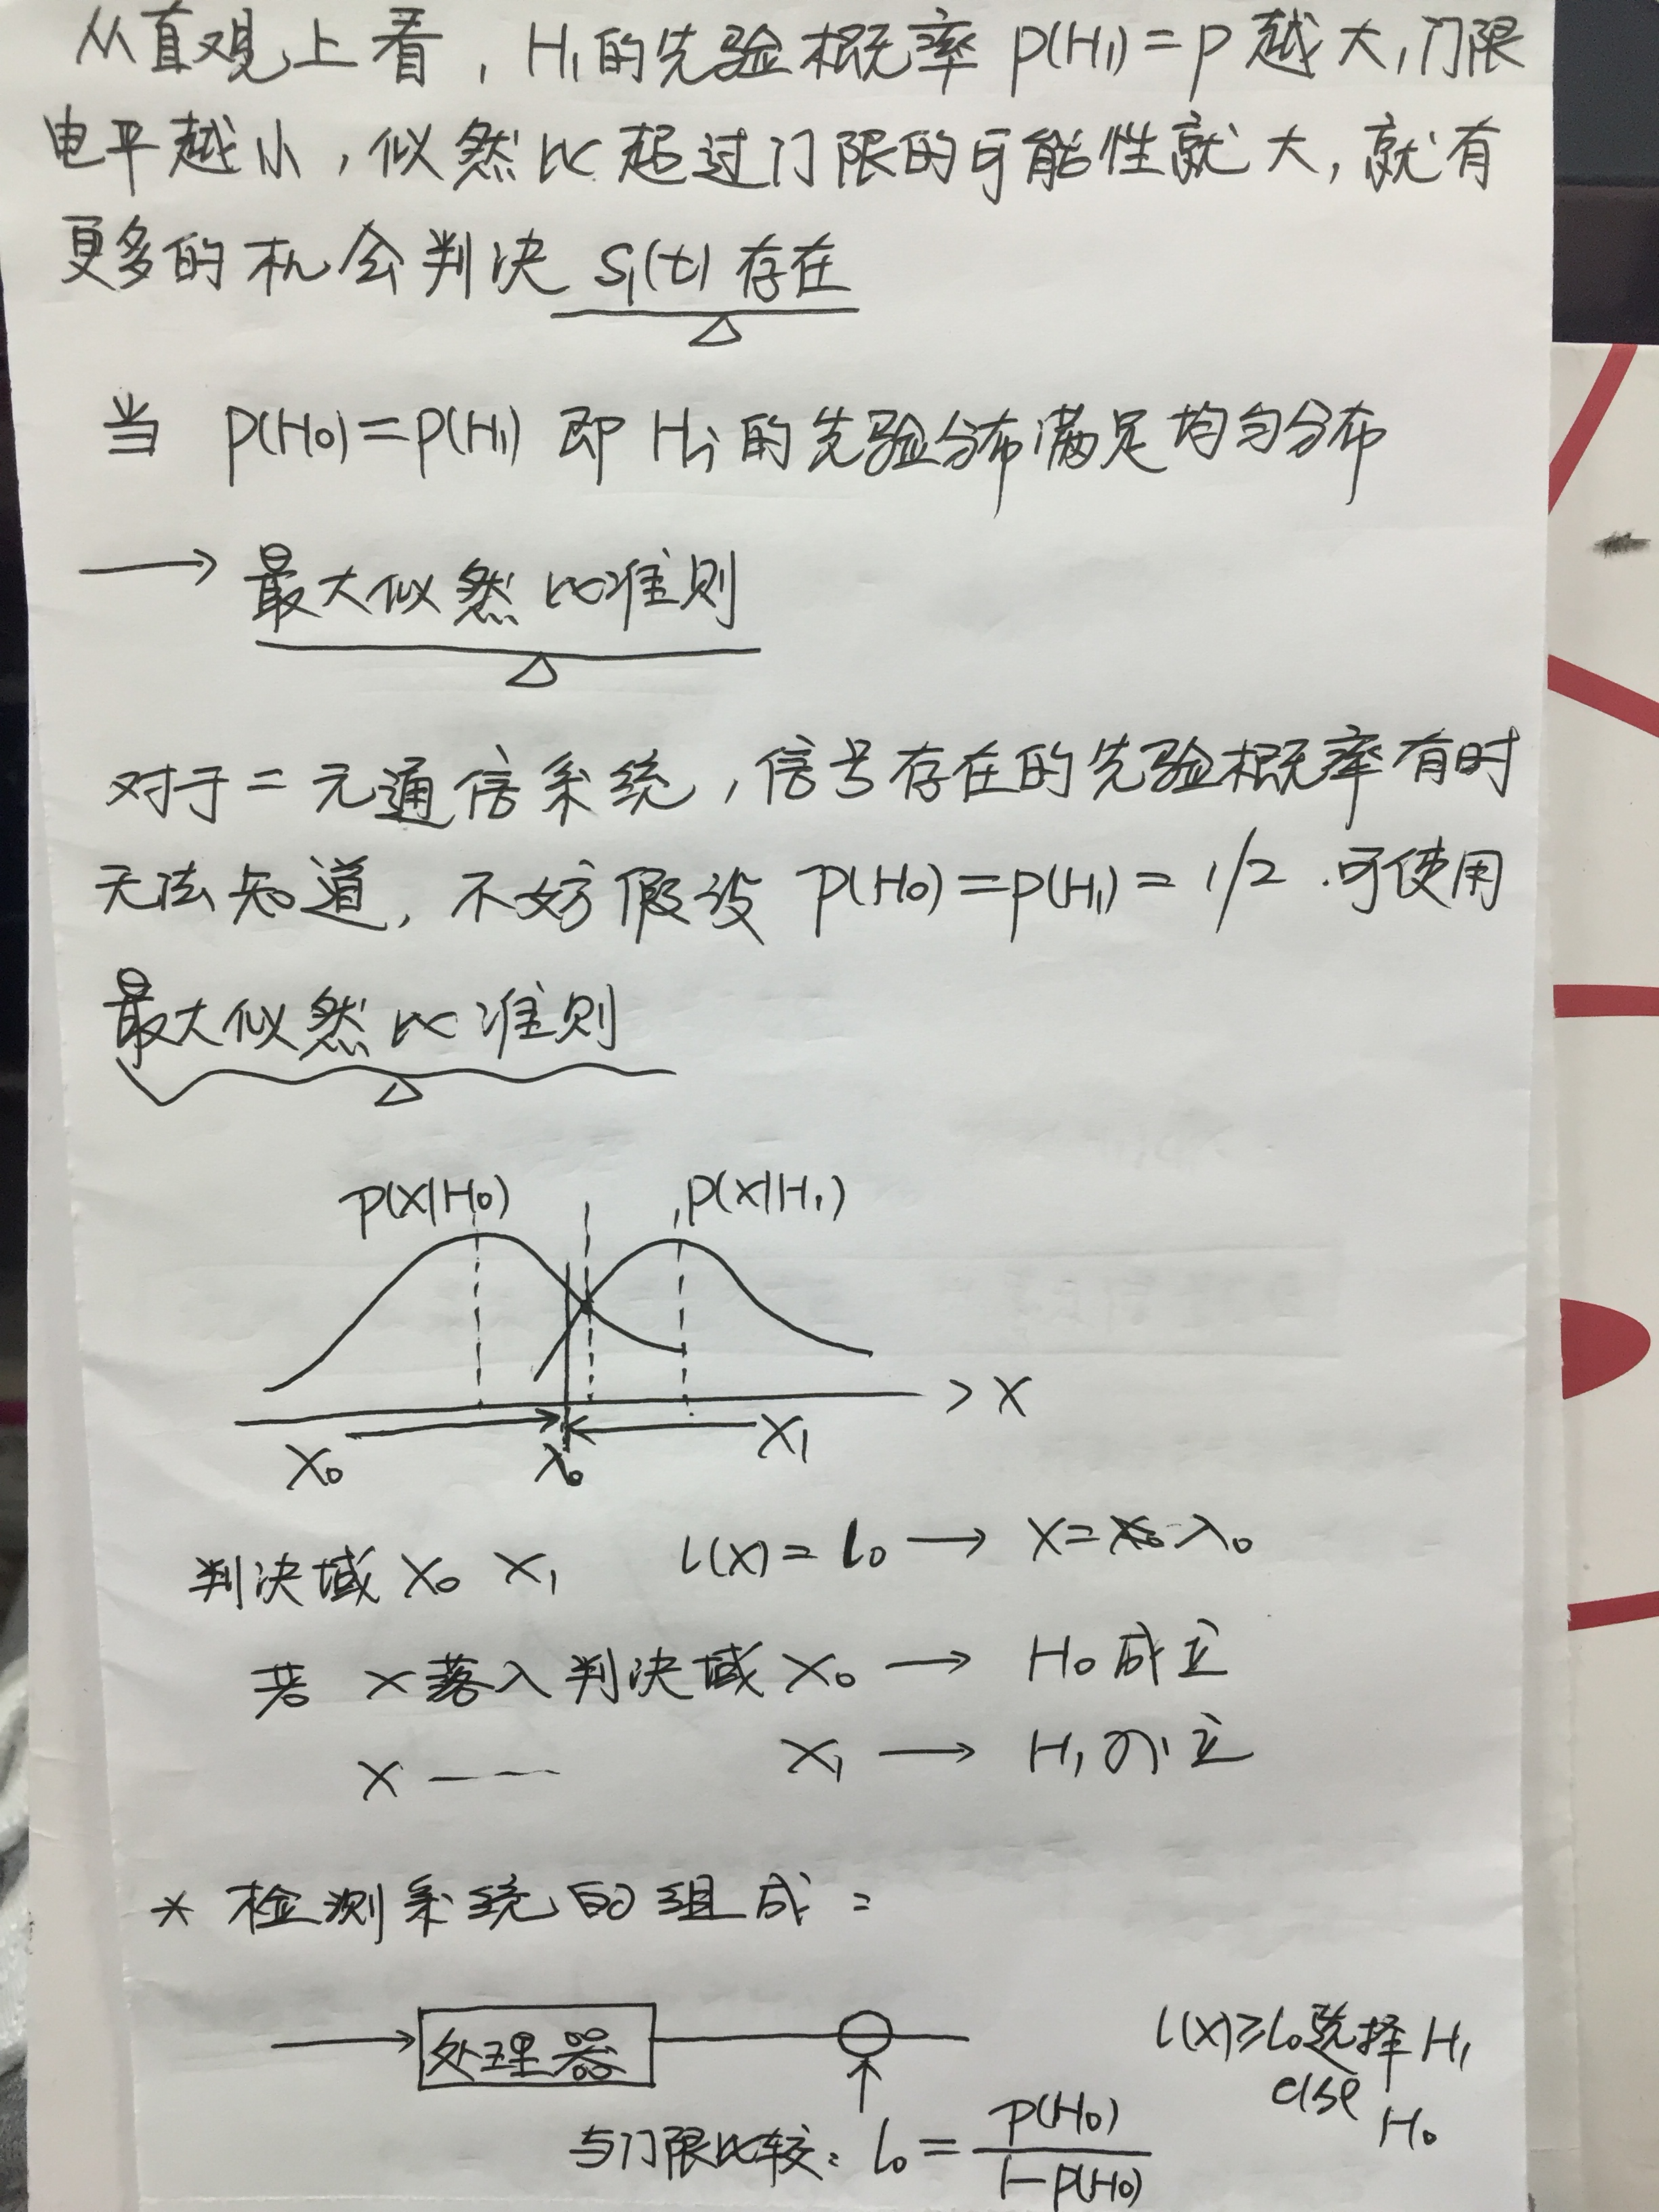 从直观上看，H₁的先验概率 p(H₁)=p 越大，门限
电平越小，似然比超过门限的可能性就大，就有
更多的机会判决 S₁(t) 存在
当 p(H₀)=p(H₁) 即 Hᵢ 的先验分布满足均匀分布
→ 最大似然比准则
对于二元通信系统，信号存在的先验概率有时
无法知道，不妨假设 p(H₀)=p(H₁)=1/2 .可使用
最大似然比准则
p(x|H₀) p(x|H₁)
> X
X₀ λ₀ X₁
判决域 X₀ X₁ l(x)=l₀ → X=λ₀
若 x落入判决域 X₀ → H₀成立
x —— X₁ → H₁成立
* 检测系统的组成：
→ 处理器
l(x)≥l₀选择H₁
else H₀
与门限比较：l₀ = p(H₀) / 1-p(H₀)